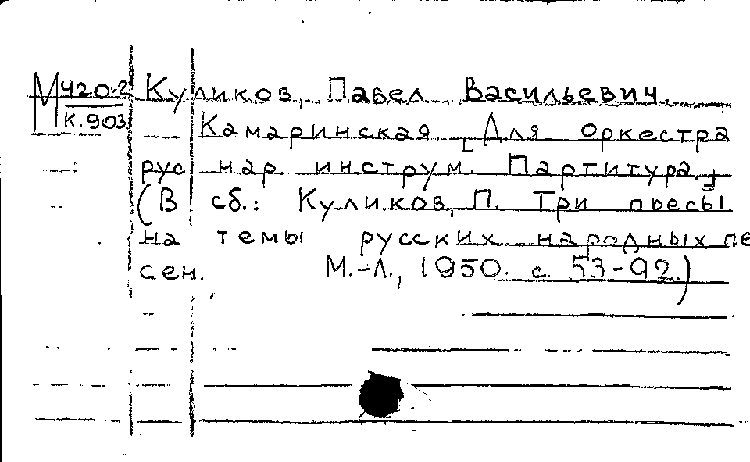 М420-2 Куликов, Павел Васильевич.
К.903
Камаринская. [Для оркестра
рус нар. инструм. Партитура.]
(В сб.: Куликов, П. Три пьесы
на темы русских народных пе
сен. М.-Л., 1950. с. 53-92.)